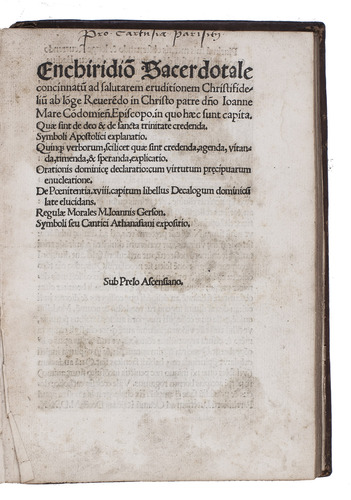 Pro Cartusia Parisien
Enchiridiō Sacerdotale
concinnatū ad salutarem eruditionem Christifide-
liū ab lōge Reuerēdo in Christo patre dño Ioanne
Mare Cōdomieñ. Episcopo. in quo hæc sunt capita.
Quæ sint de deo & de sancta trinitate credenda.
Symboli Apostolici explanatio.
Quinq; verborum, scilicet quæ sint credenda, agenda, vitan-
da, timenda, & speranda, explicatio.
Orationis dominicę declaratio: cum virtutum pręcipuarum
enucleatione.
De Pœnitentia. xviii. capitum libellus Decalogum dominicū
late elucidans.
Regulæ Morales M. Ioannis Gerson.
Symboli seu Cantici Athanasiani expositio.
Sub Prelo Ascensiano.